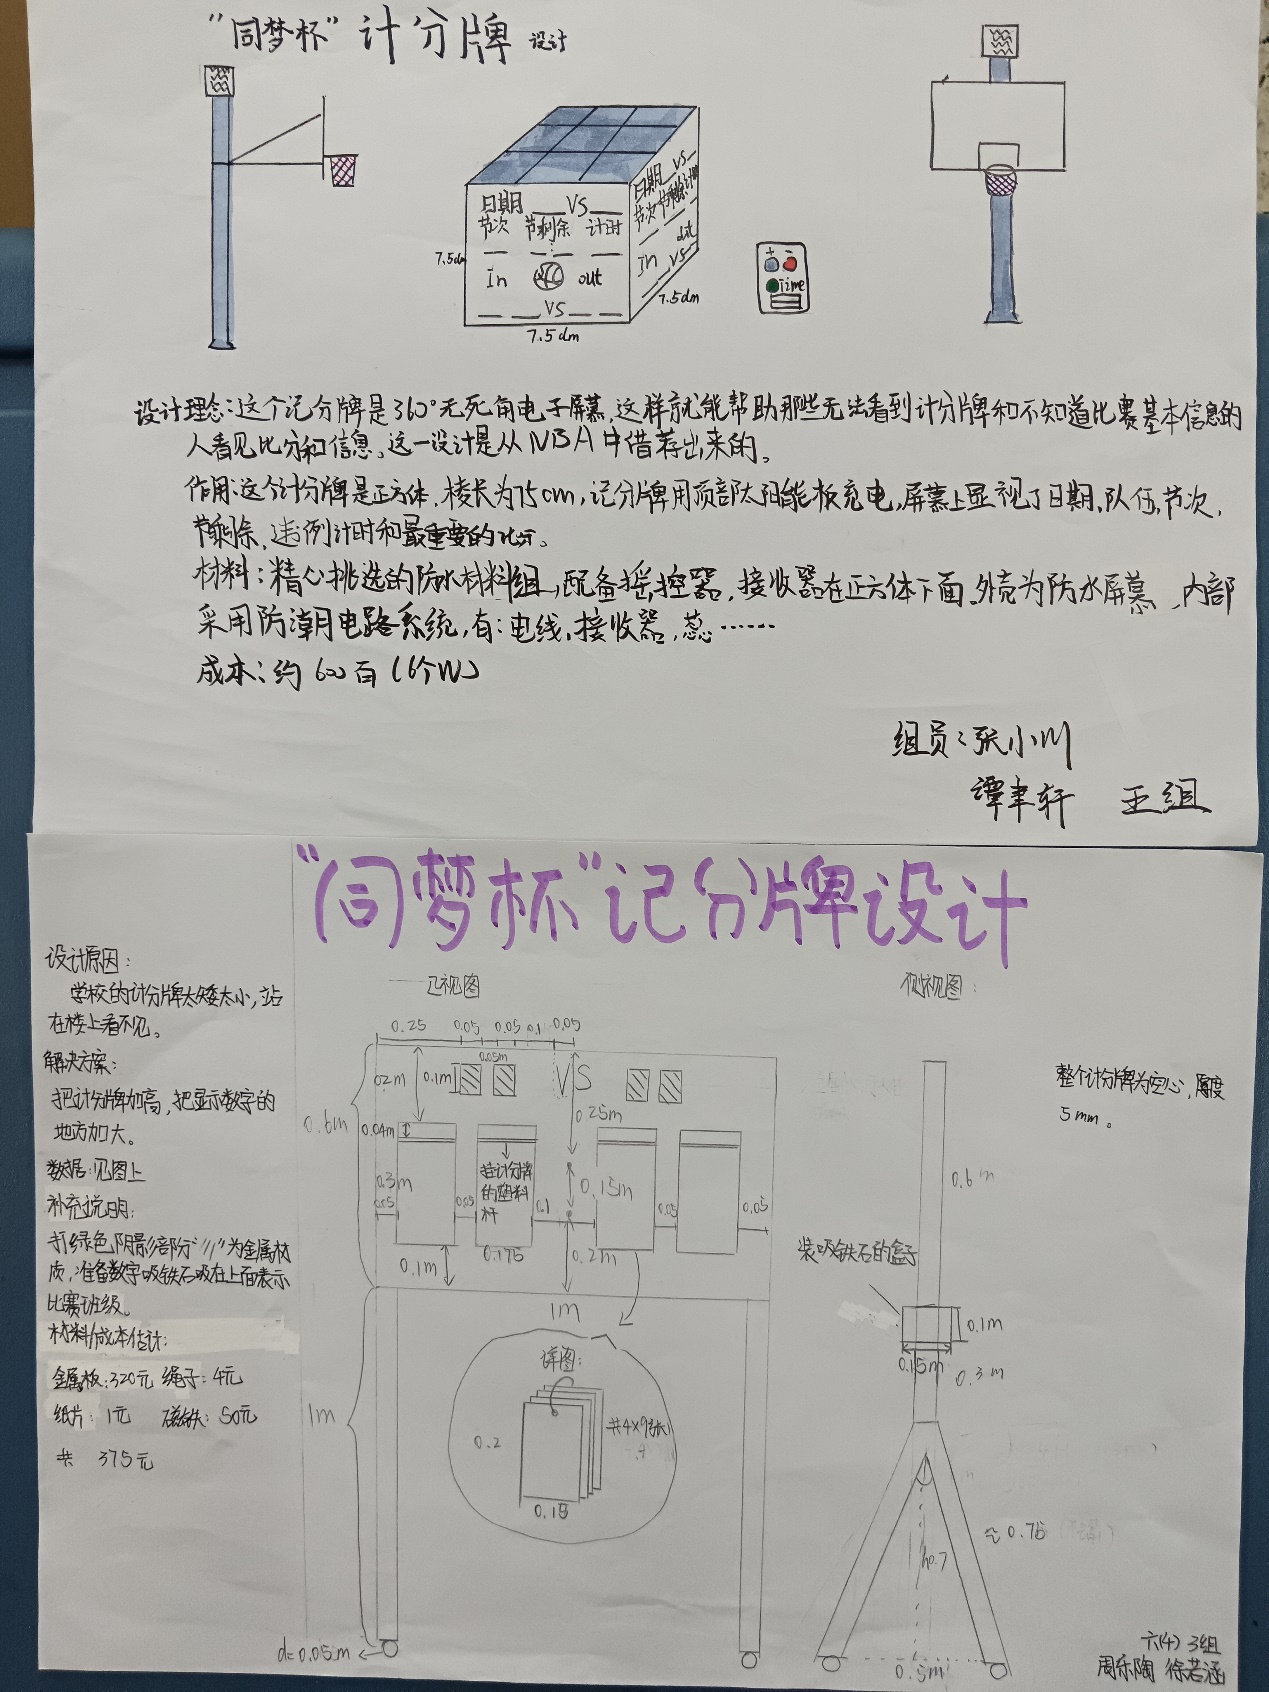 "同梦杯"计分牌 设计
日期 __VS__
节次 节剩余 计时
In out
__ VS __
日期 VS
节次 节剩余 计时
In out
VS
7.5dm
7.5dm
7.5dm
+ -
Time
设计理念:这个记分牌是360°无死角电子屏幕,这样就能帮助那些无法看到计分牌和不知道比赛基本信息的
人看见比分和信息。这一设计是从NBA中借荐出来的。
作用:这个计分牌是正方体,棱长为75cm,记分牌用顶部太阳能板充电,屏幕上显视了日期、队伍,节次,
节剩余,违例计时和最重要的比分。
材料:精心挑选的防水材料组,配备摇控器,接收器在正方体下面,外壳为防水屏幕,内部
采用防潮电路系统,有:电线,接收器,蕊……
成本:约600百(6个W)
组员:张小川
谭聿轩 王组
"同梦杯"记分牌设计
设计原因:
学校的计分牌太矮太小,站
在楼上看不见。
解决方案:
把计分牌加高,把显示数字的
地方加大。
数据:见图上
补充说明:
打绿色阴影部分"///"为金属材
质,准备数字吸铁石吸在上面表示
比赛班级。
材料/成本估计:
金属板:320元 绳子:4元
纸片:1元 磁铁:50元
共 375元
正视图
0.25 0.05 0.05 0.1 0.05
0.05m
0.2m 0.1m VS
0.6m
0.25m
0.04m
0.3m
挂计分牌
的塑料
杆
0.15m
0.05 0.05 0.1 0.05 0.05
0.175
0.1m 0.2m
1m
详图:
共4×9张
0.2
0.15
1m
d=0.05m
侧视图:
整个计分牌为空心,厚度
5mm。
0.6m
装吸铁石的盒子
0.1m
0.15m
0.3m
≈0.75
h0.7
0.5m
六(4) 3组
周乐陶 徐若涵